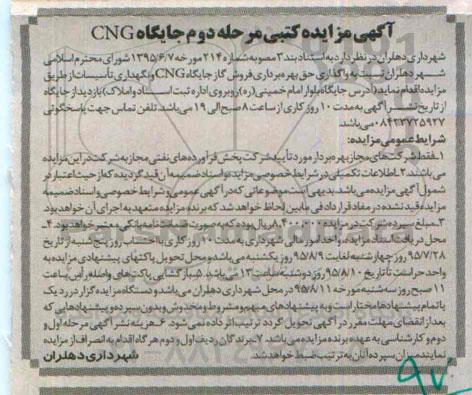 آگهی مزایده کتبی مرحله دوم جایگاه CNG
شهرداری دهلران در نظر دارد به استناد بند ۲ مصوبه شماره ۲۱۴ مورخه ۱۳۹۵/۶/۷ شورای محترم اسلامی
شهر دهلران نسبت به واگذاری حق بهره برداری فروش گاز جایگاه CNG و نگهداری تأسیسات از طریق
مزایده اقدام نماید (آدرس جایگاه بلوار امام خمینی (ره) روبروی اداره ثبت اسناد و املاک) بازدید از جایگاه
از تاریخ نشر آگهی به مدت ۱۰ روز کاری از ساعت ۸ صبح الی ۱۹ می باشد. تلفن تماس جهت پاسخگوئی
۰۸۴۳۳۷۲۵۹۲۷ می باشد.
شرایط عمومی مزایده:
۱ـ فقط شرکت های مجاز بهره بردار مورد تأیید شرکت پخش فرآورده های نفتی مجاز به شرکت در این مزایده
می باشند ۲ـ اطلاعات تکمیلی در شرایط خصوصی مزایده و اسناد ضمیمه آن قید گردیده که از حیث اعتبار در
شمول آگهی مزایده می باشد. بدیهی است موضوعاتی که در آگهی عمومی و شرایط خصوصی و اسناد ضمیمه
مزایده قید نشده در مفاد قرارداد فی مابین لحاظ خواهد شد که برنده مزایده متعهد به اجرای آن خواهد بود
۳ـ مبلغ سپرده شرکت در مزایده ریال بوده که به صورت ضمانتنامه بانکی معتبر خواهد بود. ۴ـ
محل دریافت اسناد مزایده واحد امور مالی شهرداری به مدت ۱۰ روز کاری با احتساب روز پنج شنبه از تاریخ
۹۵/۷/۲۸ روز چهارشنبه لغایت ۹۵/۸/۹ روز یکشنبه می باشد و محل تحویل پاکتهای پیشنهادی مزایده به
واحد حراست تا تاریخ ۹۵/۸/۱۰ روز دوشنبه ساعت ۱۳ می باشد. ۵ـ بازگشایی پاکت های واصله رأس ساعت
۱۱ صبح روز سه شنبه مورخه ۹۵/۸/۱۱ در محل شهرداری دهلران می باشد و دستگاه مزایده گزار در رد یک
یا تمام پیشنهادها مختار است و به پیشنهادهای مبهم و مشروط و مخدوش و بدون سپرده و پیشنهادهایی که
بعد از انقضای مهلت مقرر در آگهی تحویل گردد ترتیب اثر داده نمی شود. ۶ـ هزینه نشر آگهی مرحله اول و
دوم و کارشناسی به عهده برنده مزایده می باشد. ۷ـ برندگان ردیف اول و دوم هرگاه اقدام به انصراف از مزایده
نمایند میزان سپرده آنان به ترتیب ضبط خواهد شد.
شهرداری دهلران
۹۷